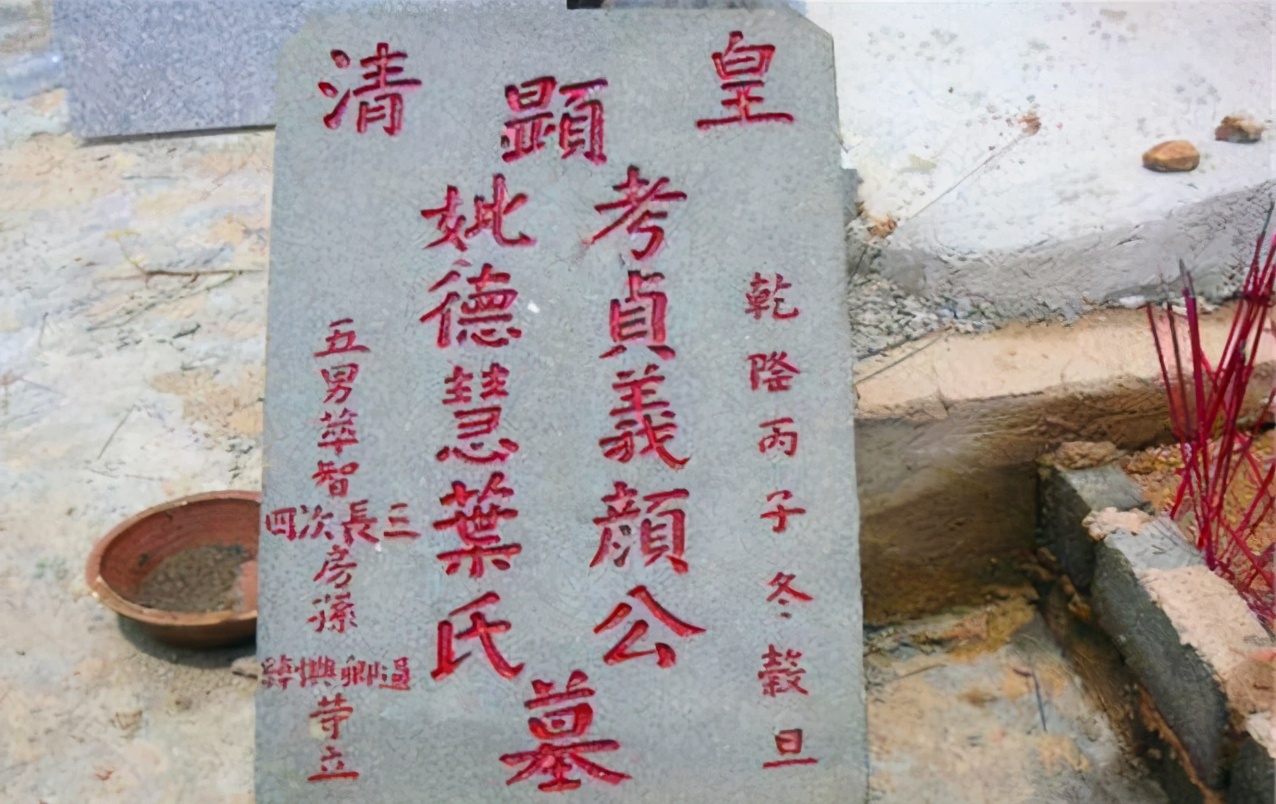 皇清
乾隆丙子冬穀旦
顯
考貞義顔公
妣德慧葉氏
墓
五男華智
三長次四
房孫
等立